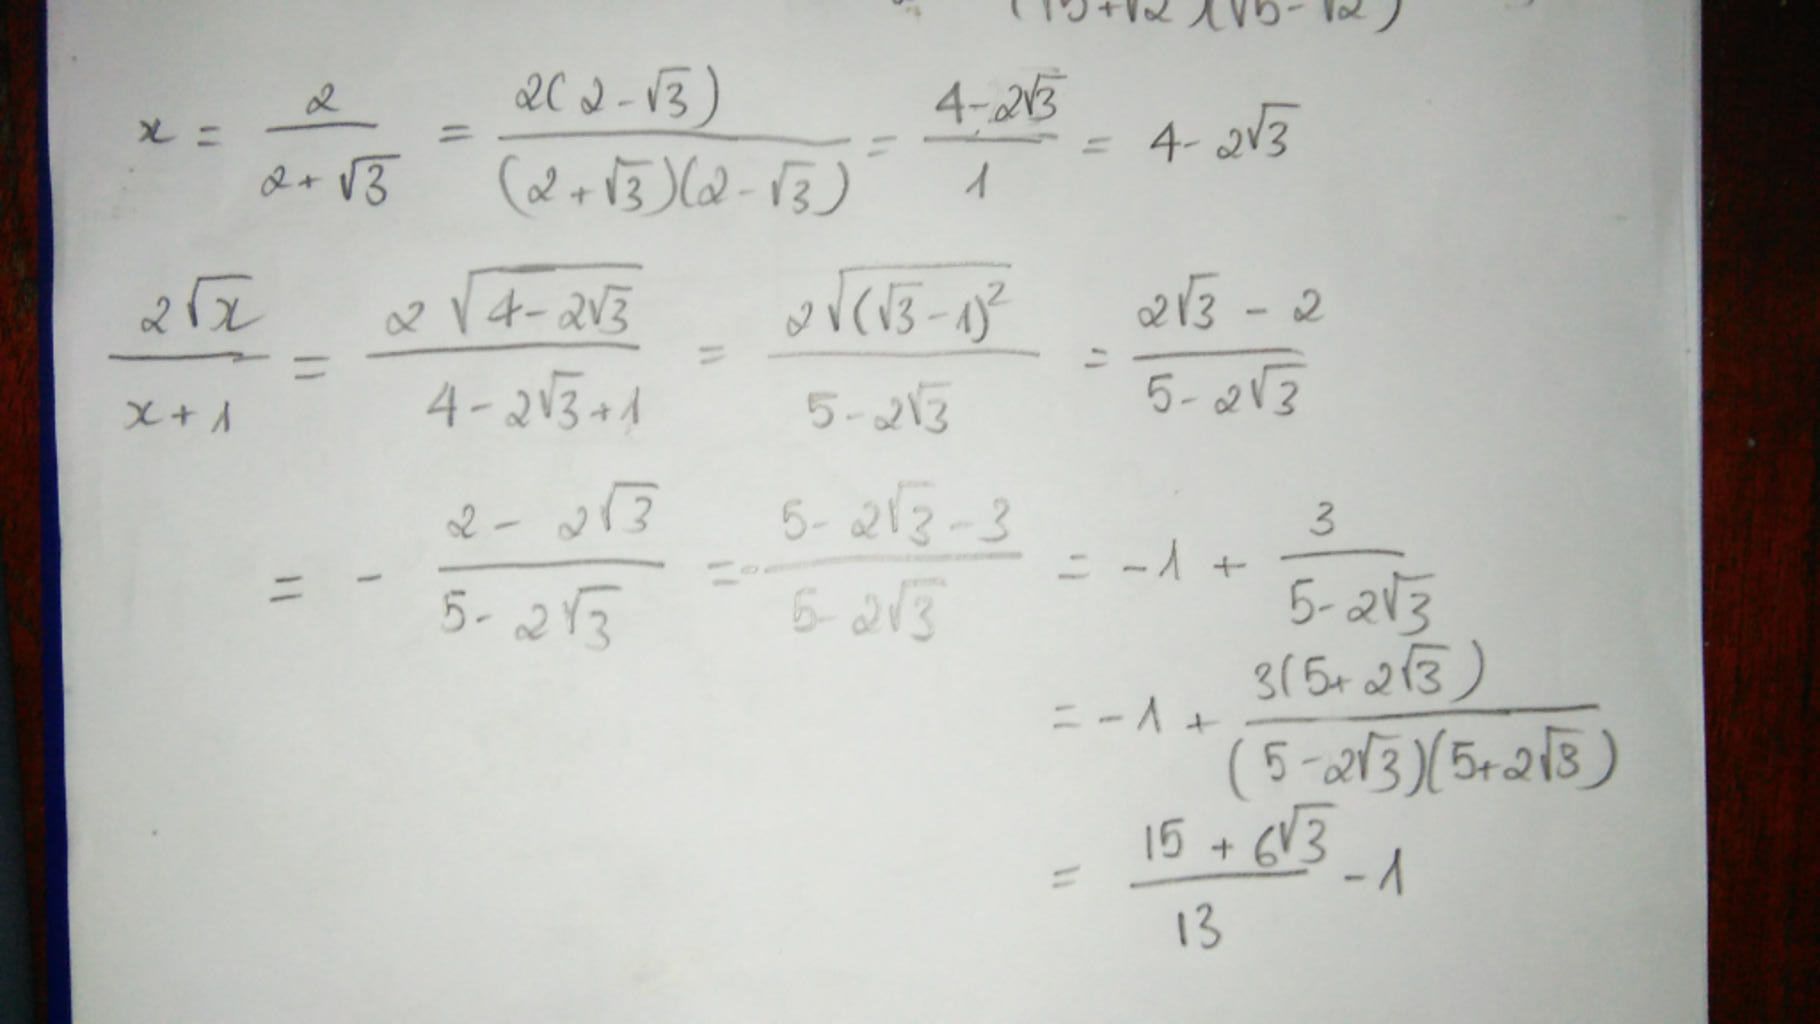 (√5+√2)(√5-√2)
x = 2/(2+√3) = 2(2-√3)/((2+√3)(2-√3)) = (4-2√3)/1 = 4-2√3
2√x/(x+1) = 2√(4-2√3)/(4-2√3+1) = 2√((√3-1)²)/(5-2√3) = (2√3-2)/(5-2√3)
= - (2-2√3)/(5-2√3) = - (5-2√3-3)/(5-2√3) = -1 + 3/(5-2√3)
= -1 + 3(5+2√3)/((5-2√3)(5+2√3))
= (15+6√3)/13 - 1